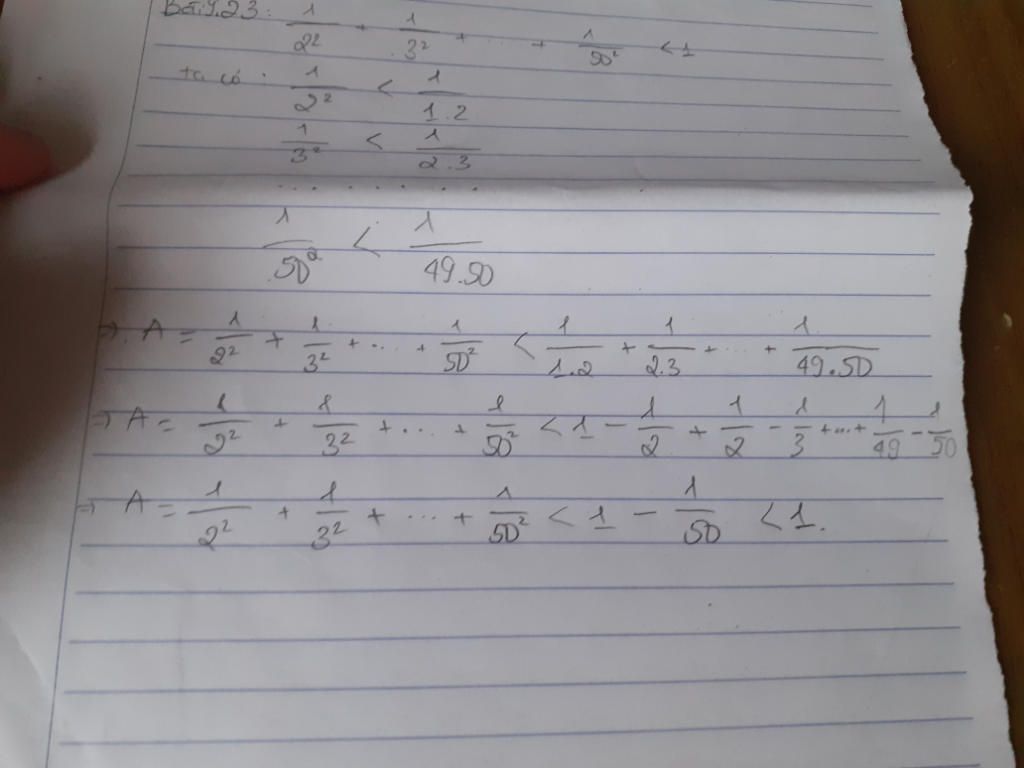 1/2² + 1/3² + ... + 1/50² < 1
ta có: 1/2² < 1/1.2
1/3² < 1/2.3
.......
1/50² < 1/49.50
=> A = 1/2² + 1/3² + ... + 1/50² < 1/1.2 + 1/2.3 + ... + 1/49.50
=> A = 1/2² + 1/3² + ... + 1/50² < 1 - 1/2 + 1/2 - 1/3 + ... + 1/49 - 1/50
=> A = 1/2² + 1/3² + ... + 1/50² < 1 - 1/50 < 1.